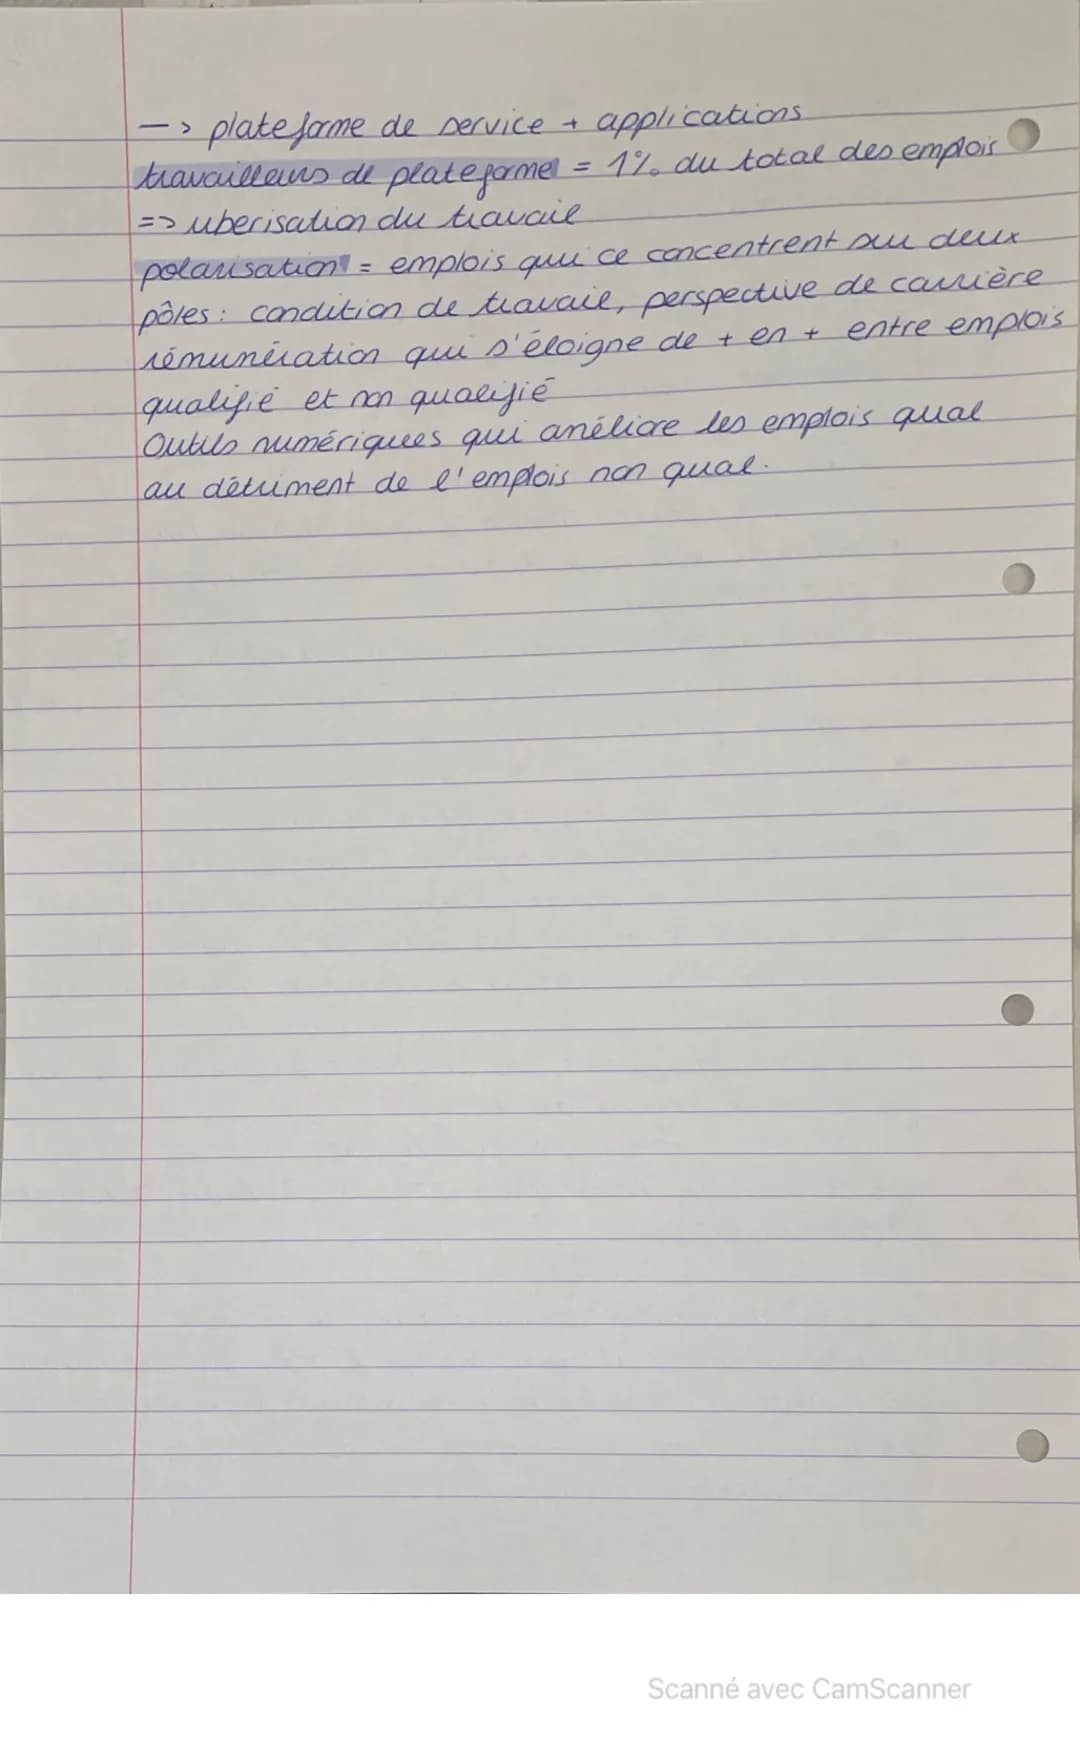 —> plateforme de service + applications
travailleurs de plateforme = 1% du total des emplois
=> uberisation du travail
polarisation = emplois qui ce concentrent sur deux
pôles : condition de travail, perspective de carrière
rémunération qui s'éloigne de + en + entre emplois
qualifié et non qualifié
Outils numériques qui améliore les emplois qual
au détriment de l'emplois non qual.
Scanné avec CamScanner